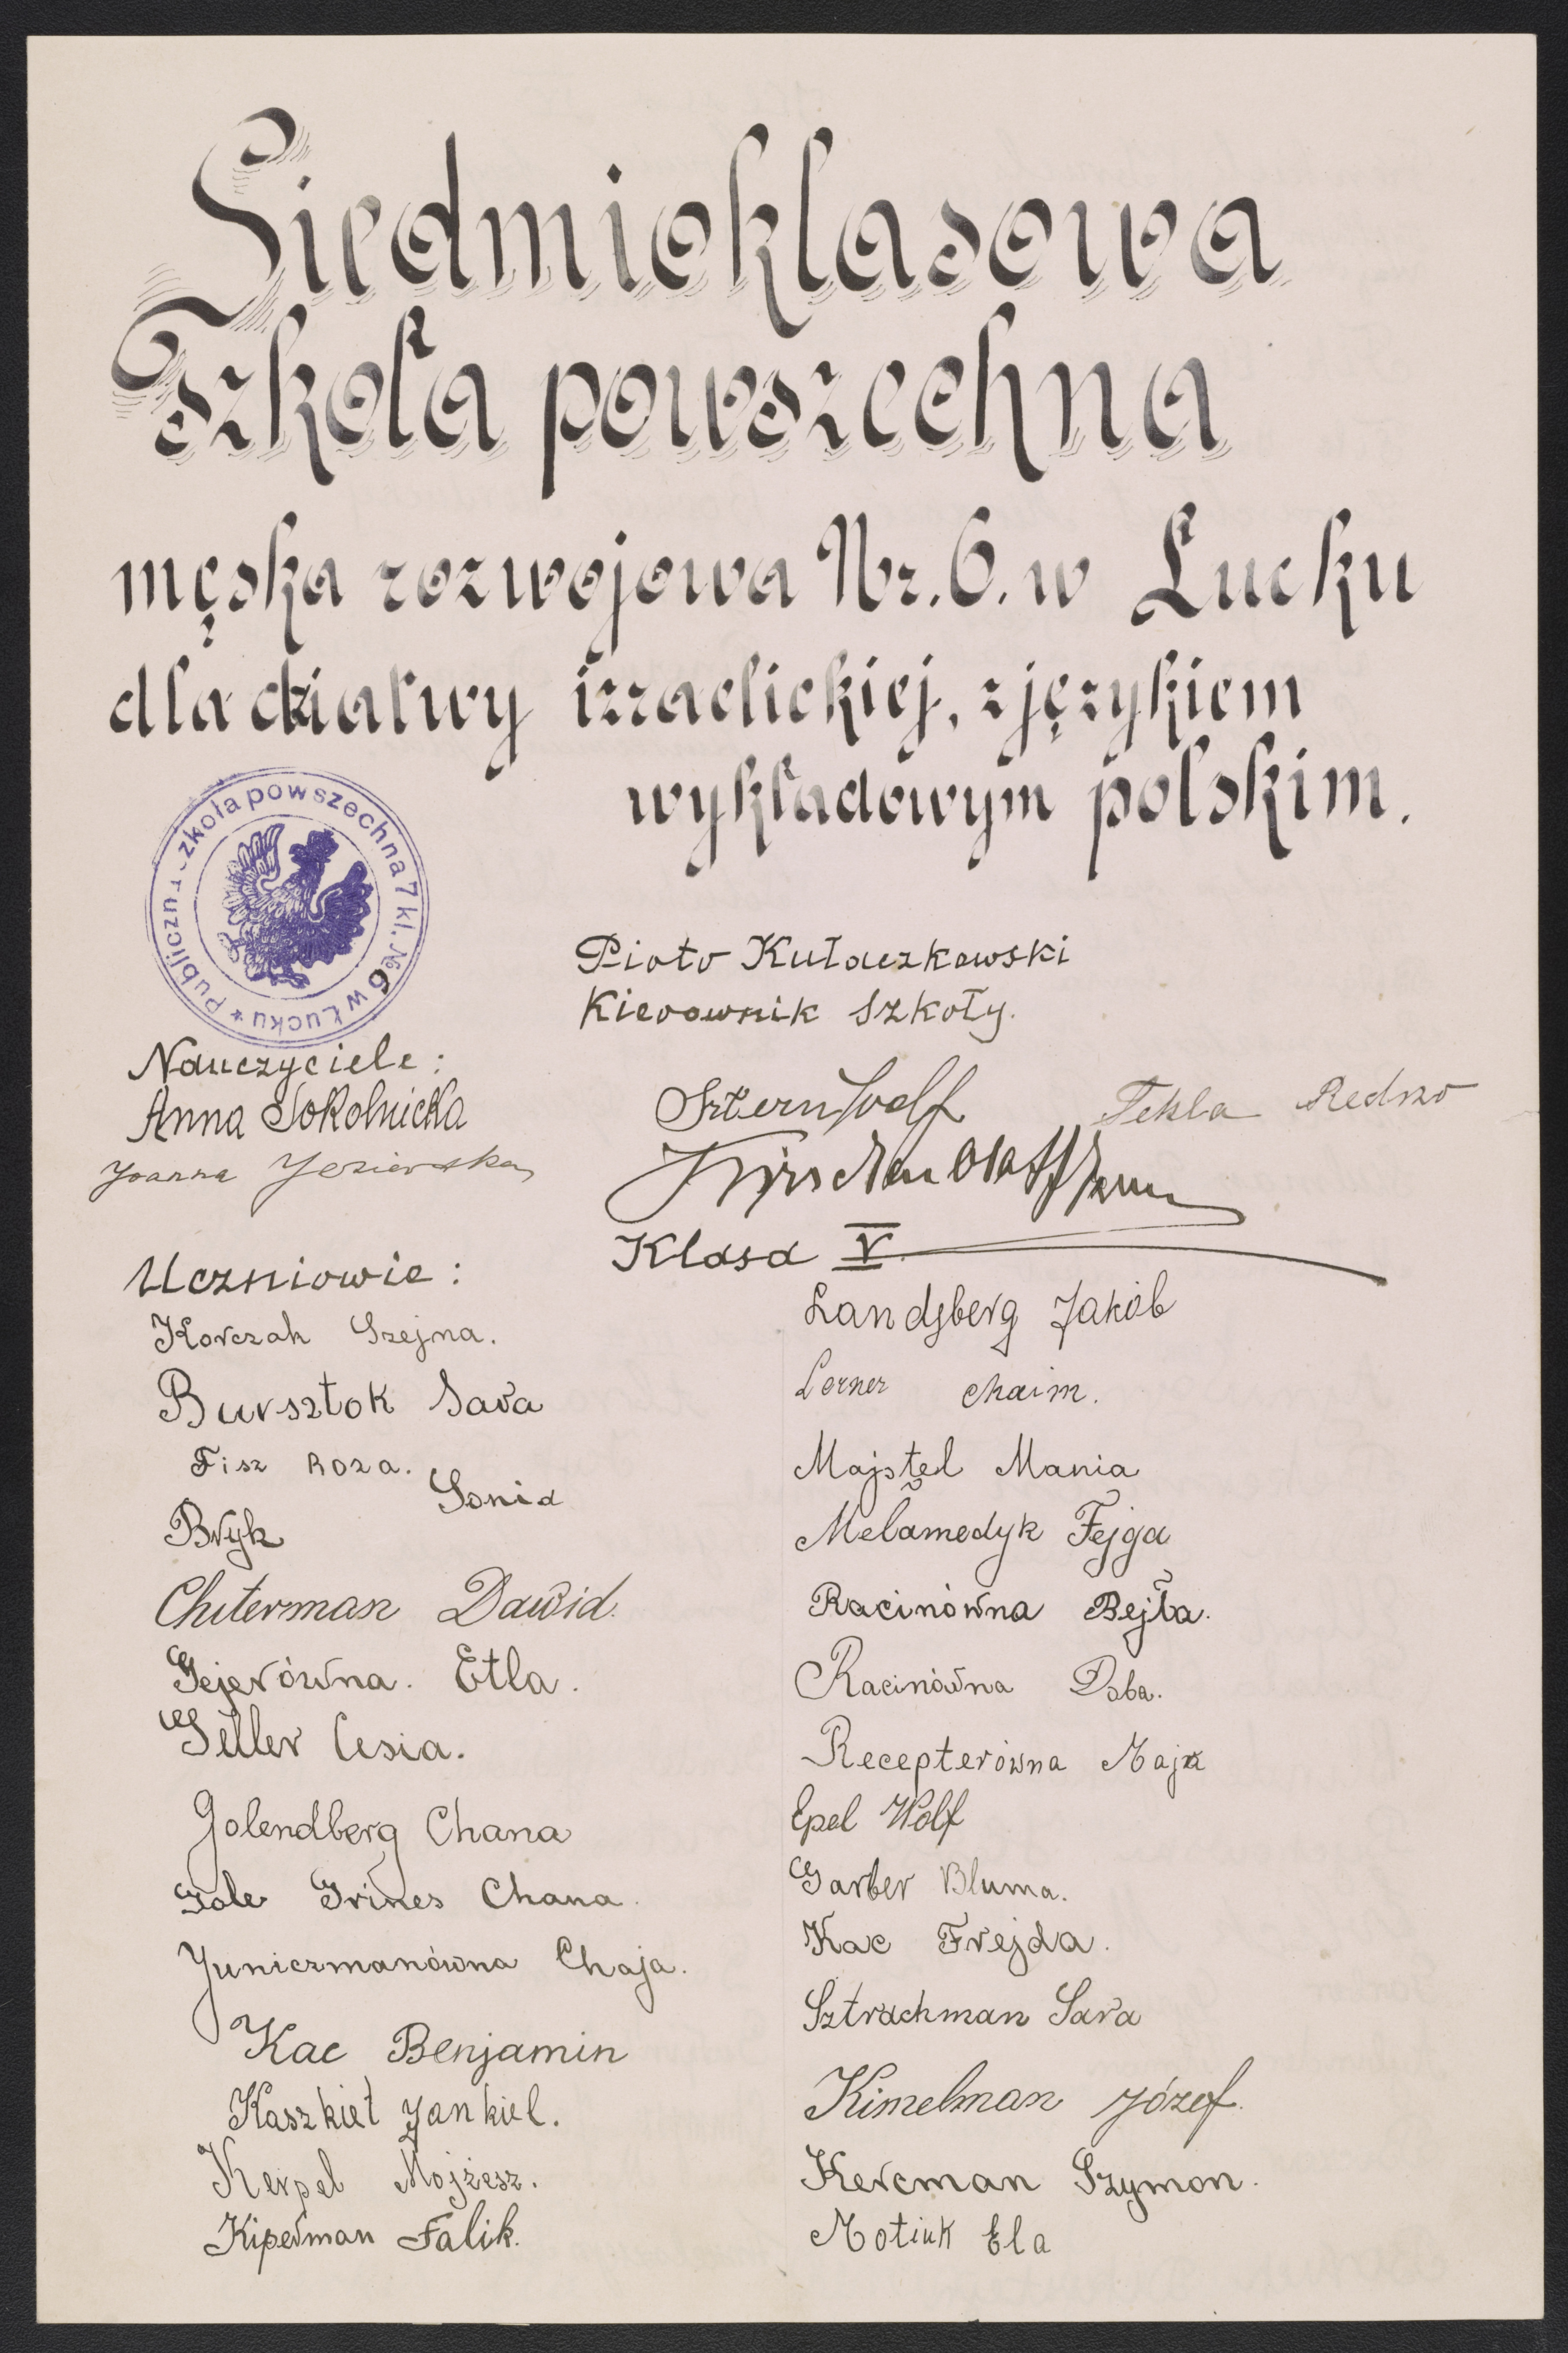 Siedmioklasowa
Szkoła powszechna
męska rozwojowa Nr. 6. w Łucku
dla dziatwy izraelickiej, z językiem
wykładowym polskim.
Publiczna szkoła powszechna 7 kl. № 6 w Łucku *
Piotr Kułaczkowski
Kierownik Szkoły.
Nauczyciele:
Anna Sokolnicka
Sztern Wolf
Tekla
Joanna Jezierska
Klasa V.
Uczniowie:
Korczak Szejna.
Bursztok Sara
Fisz Roza.
Bryk Sonia
Chiterman Dawid.
Gejerówna. Etla.
Geller Cesia.
Golendberg Chana
Gole Grines Chana.
Juniczmanówna Chaja.
Kac Benjamin
Kaszkiet Jankiel.
Kerpel Mojżesz.
Kiperman Falik.
Landsberg Jakób
Lerner Chaim.
Majstel Mania
Melamedyk Fejga
Racinówna Bejła.
Racinówna Doba.
Recepterówna Maja
Epel Wolf
Garber Bluma.
Kac Frejda.
Sztrachman Sara
Kimelman Józef.
Kercman Szymon.
Motiuk Ela